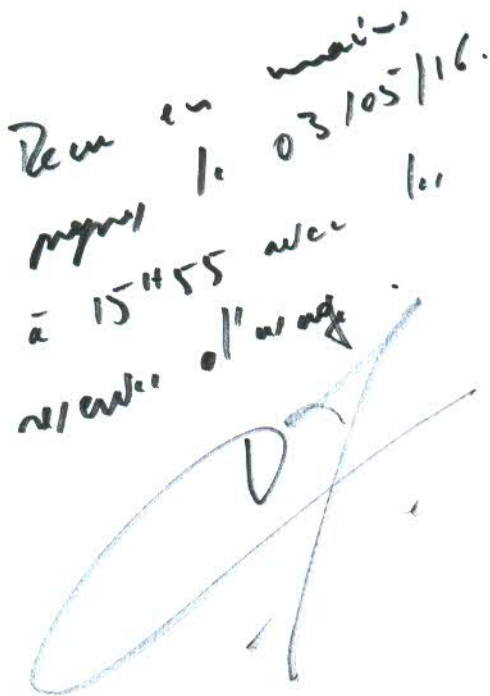 Recu en mains
propres le 03/05/16.
à 15H55 avec les
reserves d'usage.